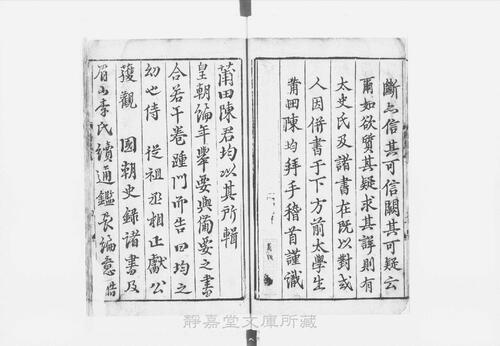 斷以信其可信闕其可疑云
爾如欲質其疑求其詳則有
太史氏及諸書在既以對或
人因併書于下方前太學生
莆田陳均拜手稽首謹識
莆田陳君均以其所輯
皇朝編年舉要與備要之書
合若干卷踵門而告曰均之
幼也侍 從祖丞相正獻公
獲觀 國朝史錄諸書及
眉山李氏續通鑑長編意酷
靜嘉堂文庫所藏